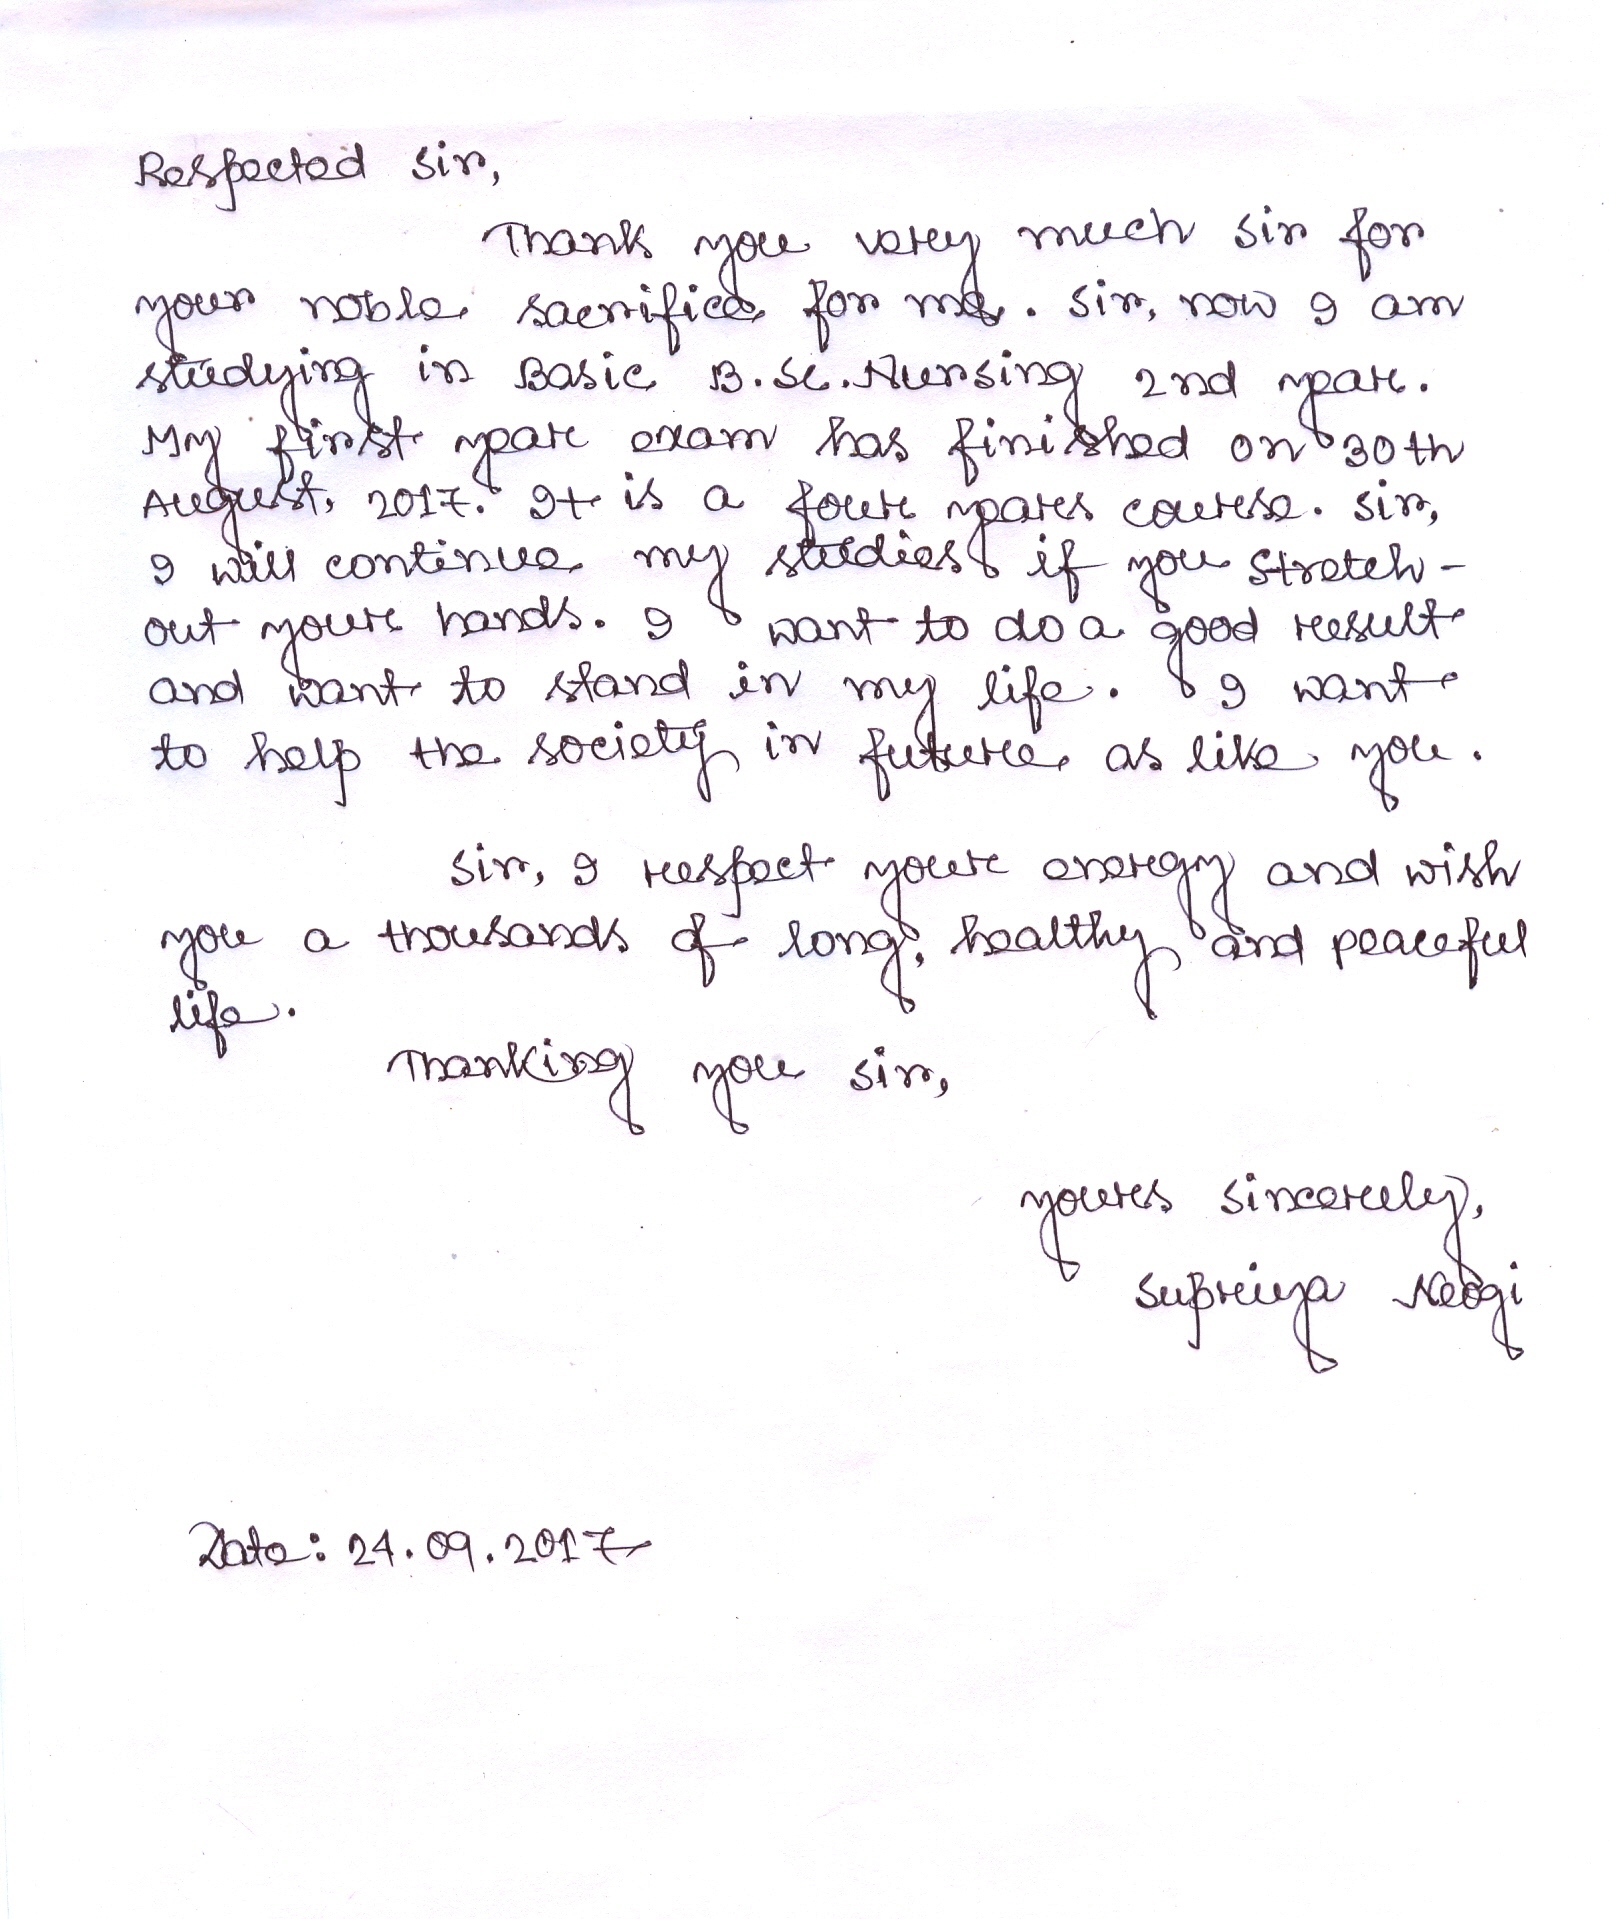 Respected Sir,
Thank you very much sir for
your noble sacrifice for me. Sir, now I am
studying in Basic B.Sc. Nursing 2nd year.
My first year exam has finished on 30th
August, 2017. It is a four years course. Sir,
I will continue my studies if you stretch-
out your hands. I want to do a good result
and want to stand in my life. I want
to help the society in future as like you.
Sir, I respect your energy and wish
you a thousands of long, healthy and peaceful
life.
Thanking you sir,
yours sincerely,
Supriya Neogi
Date: 24.09.2017